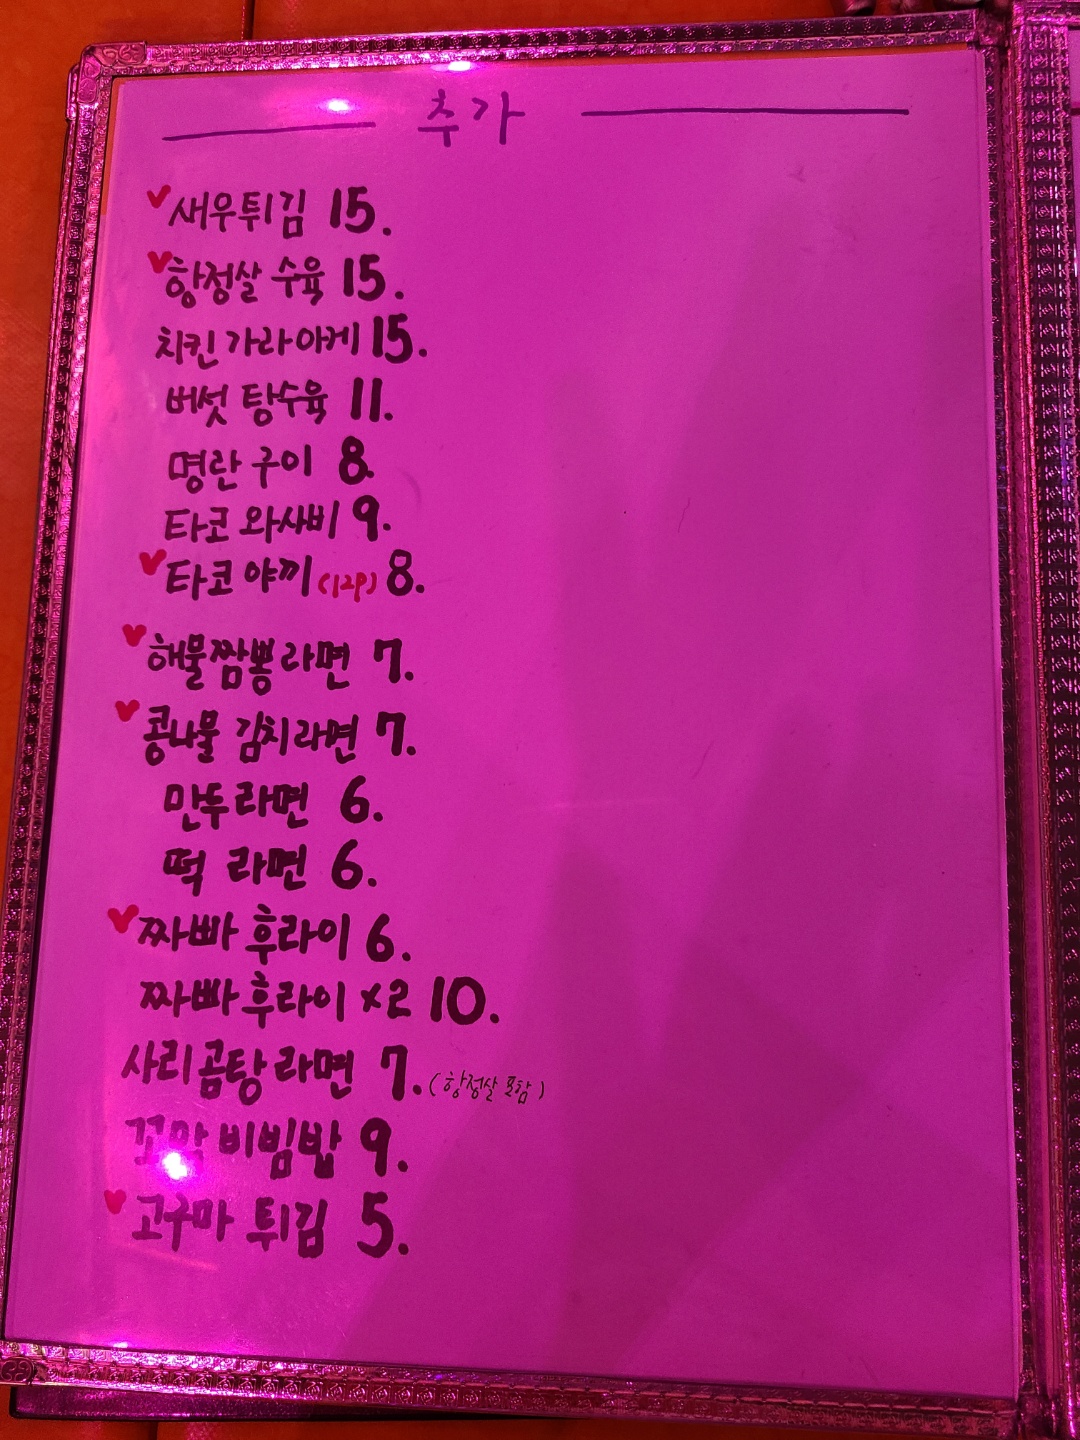 추가
새우튀김 15.
항정살 수육 15.
치킨 가라아케 15.
버섯 탕수육 11.
명란구이 8.
타코 와사비 9.
타코 야끼 (12P) 8.
해물짬뽕라면 7.
콩나물 김치라면 7.
만두라면 6.
떡 라면 6.
짜빠 후라이 6.
짜빠후라이 x2 10.
사리곰탕라면 7. (항정살 포함)
꼬막 비빔밥 9.
고구마 튀김 5.